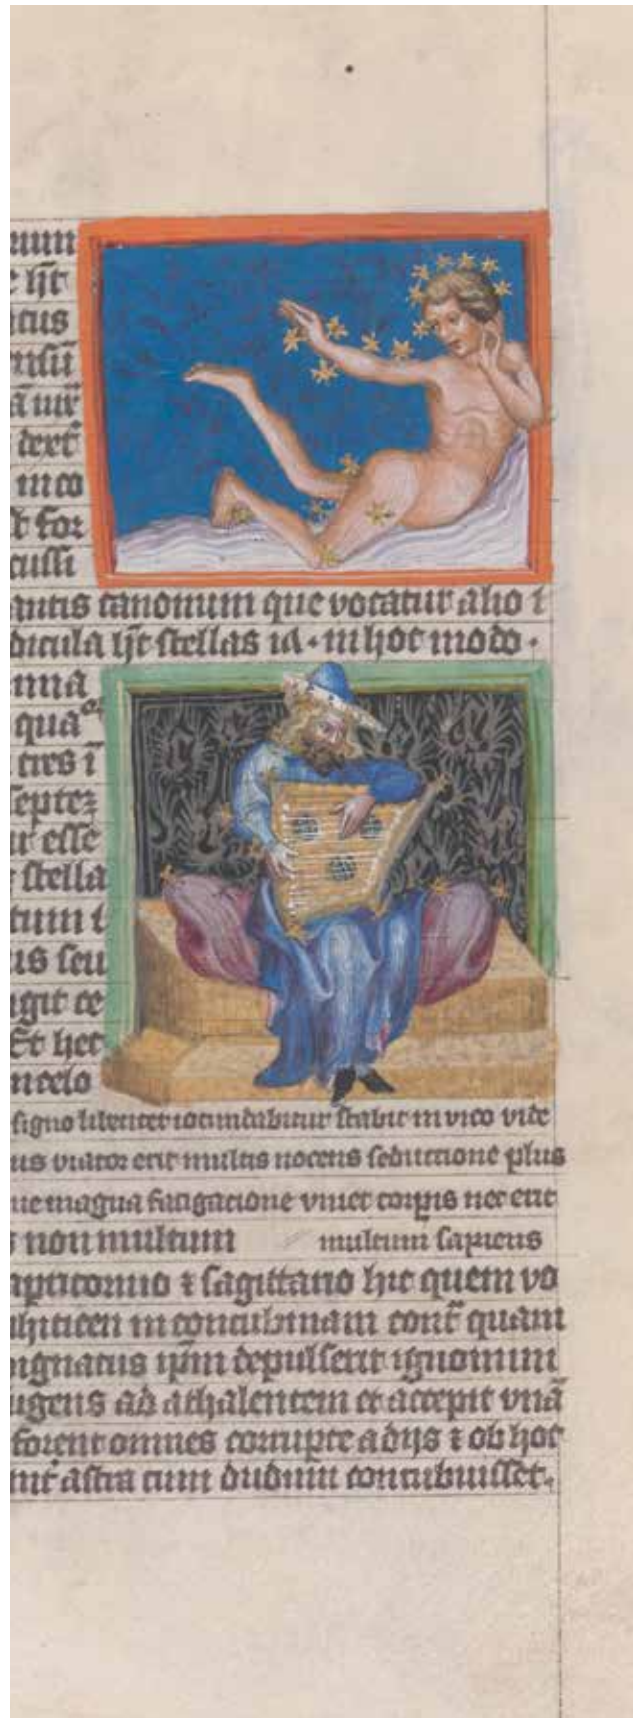 rum
e hñt
atus
ã
dext̃
in co
t for
cussi
antis canonum que vocatur alio i
dicula hñt stellas ia · in hoc modo ·
nna
qua
tres ĩ
septez
ur esse
stella
tum i
us seu
git ce
Et hec
in celo
signo libenter iocundabitur stabit in vico vide
us viator erit multis nocens seductione plus
ue magna fatigacione viuet corpis nec erit
non multum multum sapiens
apricorno ⁊ sagittario hic quem vo
in concubinam cont̃ quam
ignatus ip̃m depulserit ignomini
ugens ad athalentem et accepit vnã
forent omnes corrupte a dijs ⁊ ob hoc
astra cum dudum concubuisset.